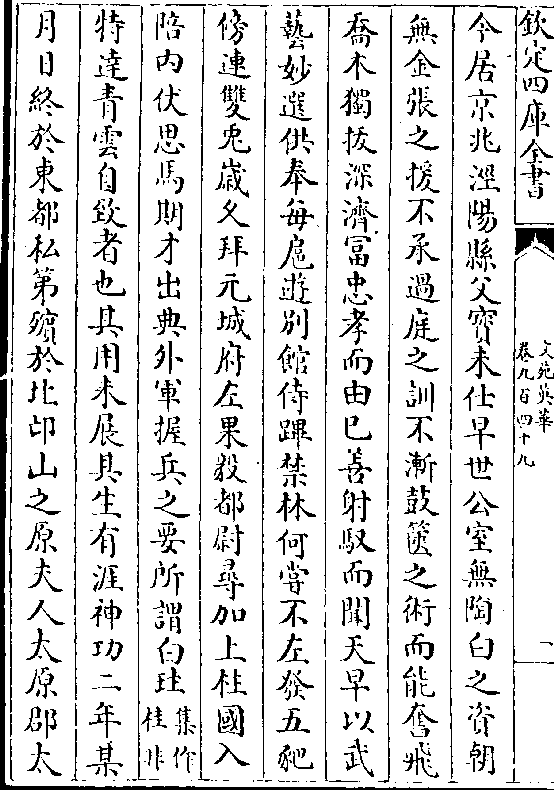 欽定四庫全書
文苑英華
卷九百四十九
一
今居京兆涇陽縣父寶未仕早世公室無陶白之資朝
無金張之援不承過庭之訓不漸鼓篋之術而能奮飛
喬木獨抜深濟冨忠孝而由已善射馭而聞天早以武
藝妙選供奉每扈遊别館侍蹕禁林何嘗不左發五豝
傍連雙兎嵗久拜元城府左果毅都尉尋加上柱國入
陪内仗思馬期才出典外軍握兵之要所謂白珪集作桂非
特達青雲自致者也其用未展其生有涯神功二年某
月日終於東都私第殯於北邙山之原夫人太原郡太